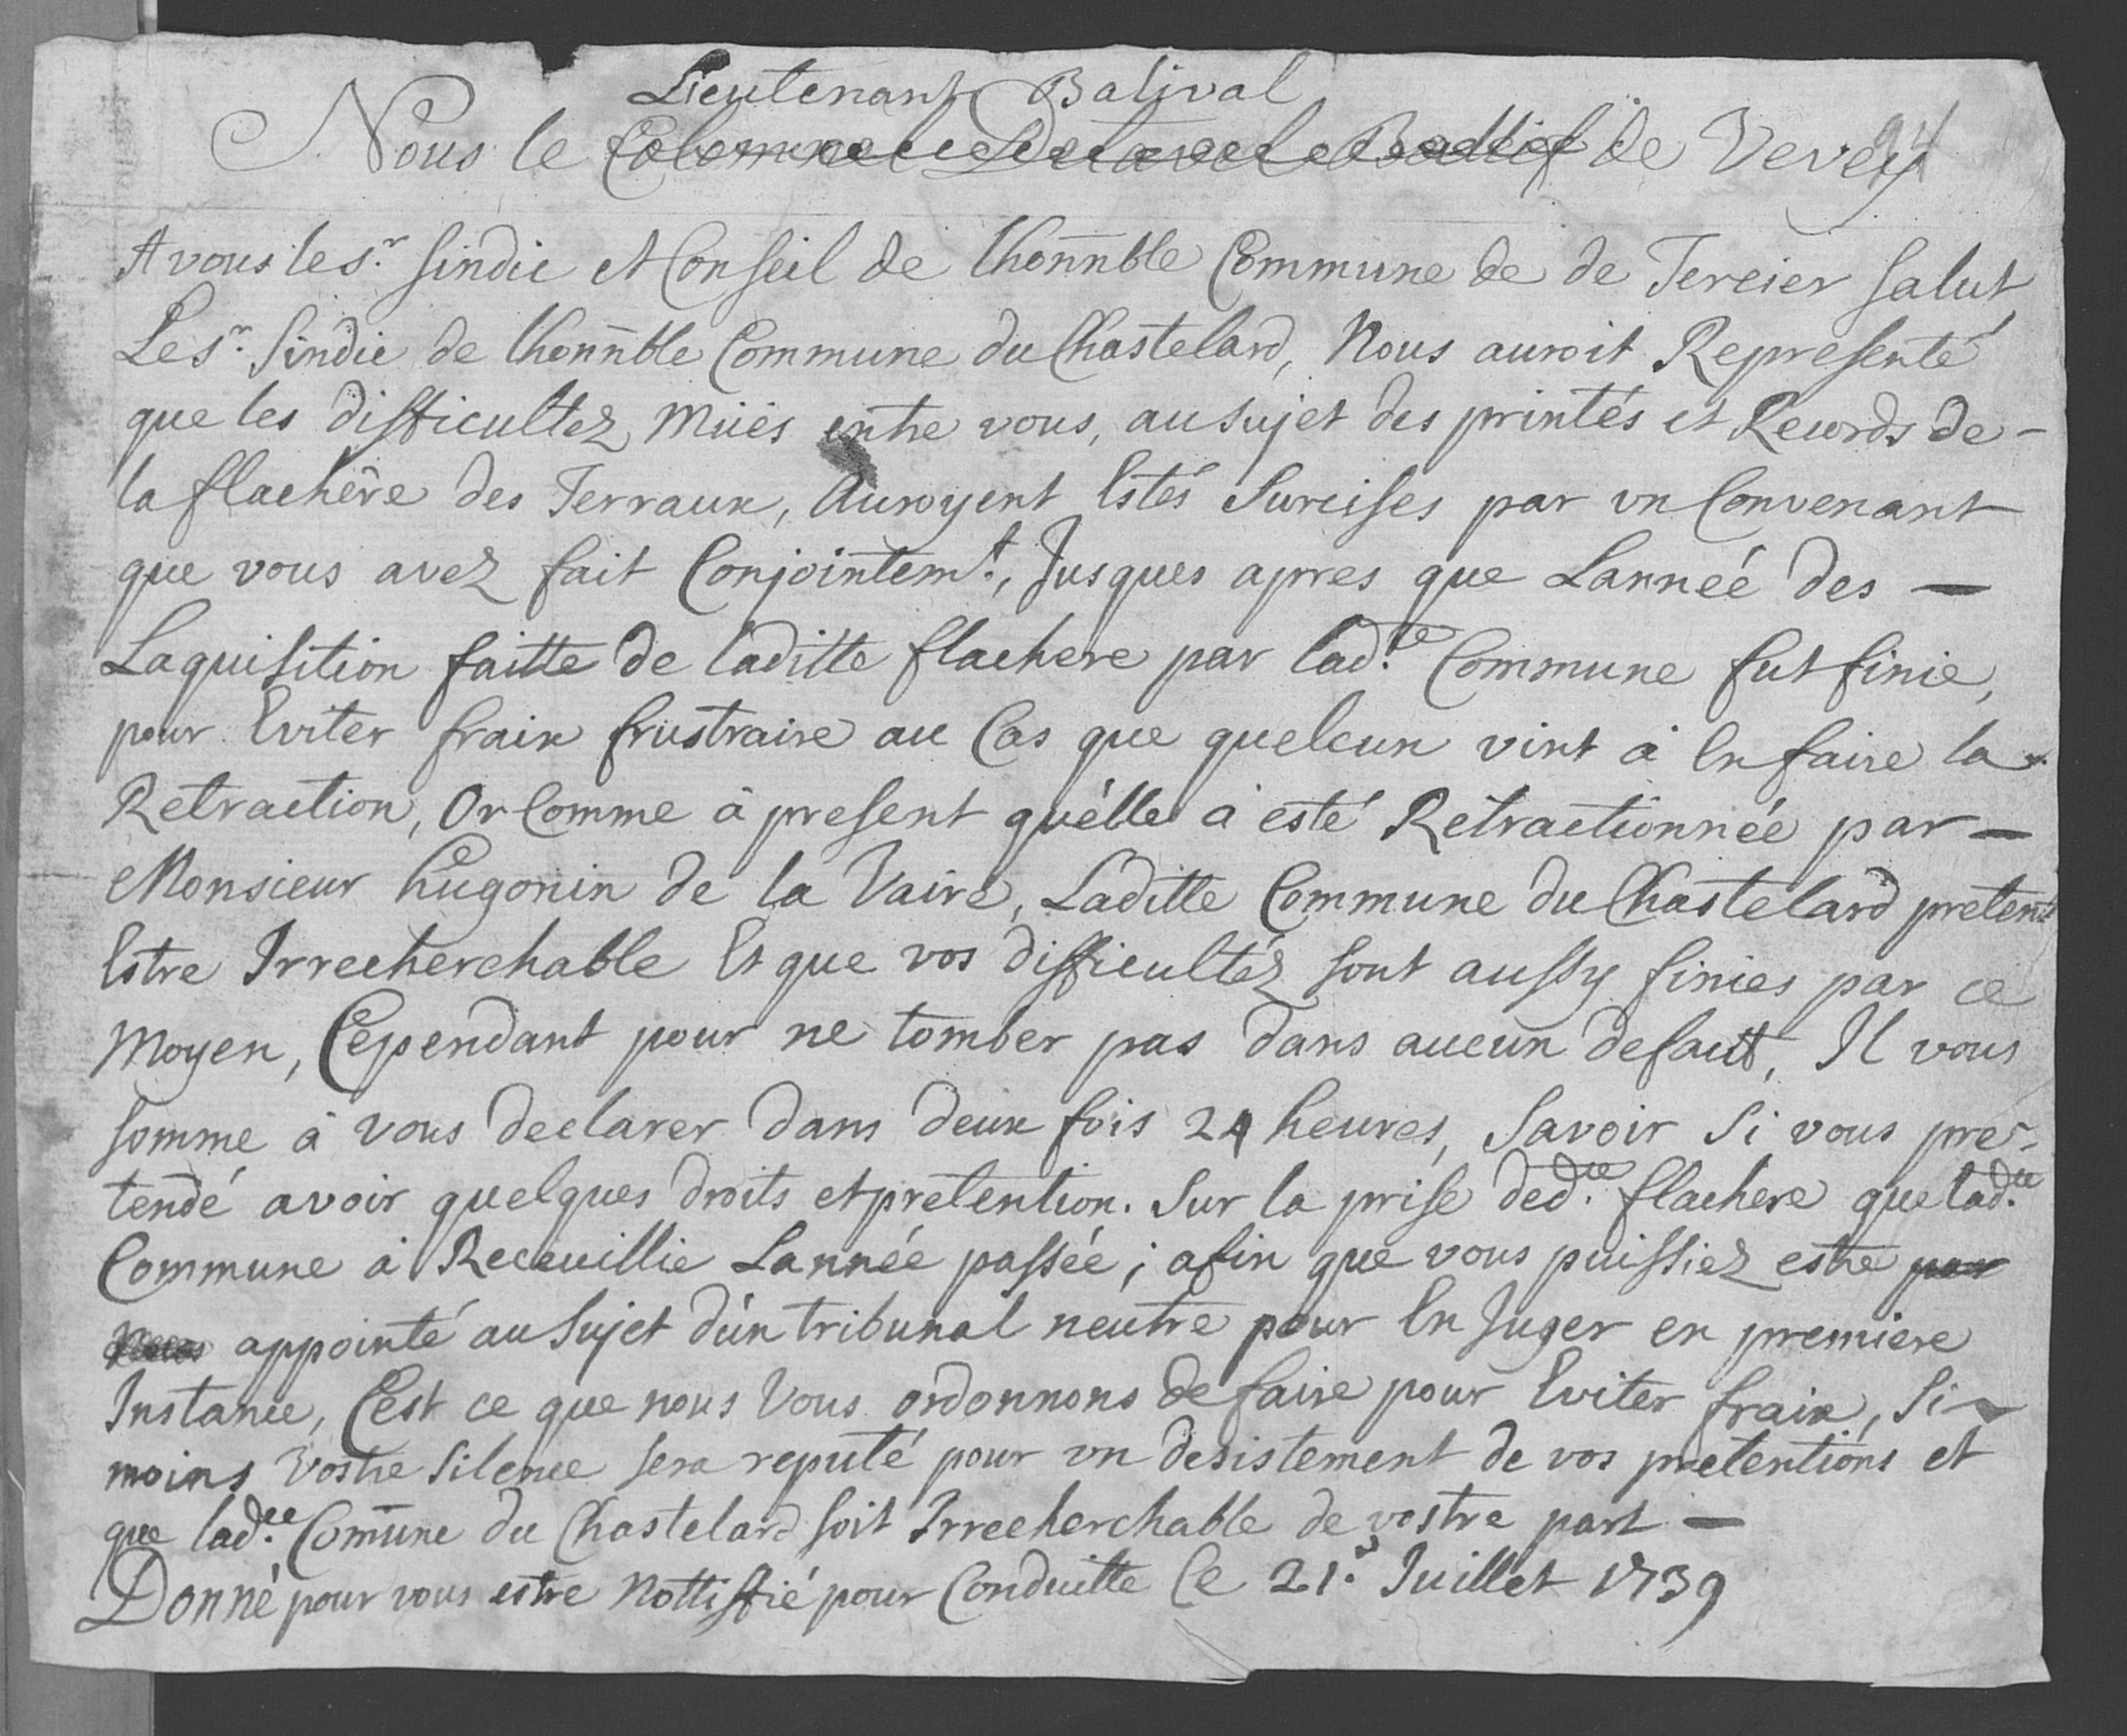 Lieutenant Balival
Nous le Colomnel Delavel Baillif de Vevey
94
A vous le Sr. Sindic et Conseil de lhonnble Commune de de Tercier Salut
Le Sr. Sindic de lhonnble Commune du Chastelard, Nous auroit Representé
que les difficultez müés entre vous, au sujet des printés et Records de -
la flachère des Terraux, Auroyent Estés Surcises par vn Convenant
que vous avez fait Conjointemt., Jusques apres que Lanneé des —
Laquisition faitte de laditte flachere par ladte. Commune fut finie,
pour Eviter fraix frustraire au Cas que quelcun vint à En faire la
Retraction, Or Comme à present qu'élle à esté Retractionnée par —
Monsieur hugonin de la Vaire, Laditte Commune du Chastelard pretent
Estre Irrecherchable Et que vos difficultéz sont aussy finies par ce
Moyen, Cependant pour ne tomber pas dans aucun defautt, Il vous
somme à vous declarer dans deux fois 24 heures, Savoir Si vous pre-
tendé avoir quelques droits et pretention. Sur la prise dedte. flachere que ladte.
Commune à Receuillie Lannée passée ; afin que vous puissiez estre par
Nous appointé au Sujet d'ùn tribunal neutre pour En Juger en premiere
Instance, C'est ce que nous Vous ordonnons de faire pour Eviter fraix, Si
moins Vostre Silence sera reputé pour vn desistement de vos pretentions et
que ladte. Comune du Chastelard soit Irrecherchable de vostre part —
Donné pour vous estre Nottiffié pour Conduitte Ce 21e. Juillet 1739